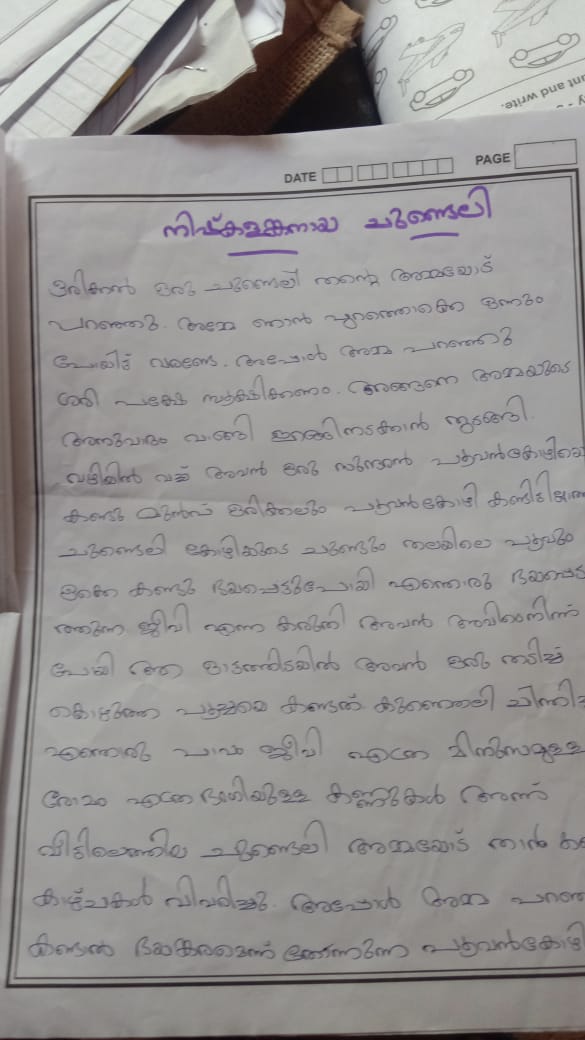 ant and write.
DATE PAGE
നിഷ്കളങ്കനായ ചുണ്ടെലി
ഒരിക്കൽ ഒരു ചുണ്ടെലി തന്റെ അമ്മയോട്
പറഞ്ഞു. അമ്മേ ഞാൻ പുറത്തൊക്കെ ഒന്നും
പോയിട്ട് വരണ്ടേ. അപ്പോൾ അമ്മ പറഞ്ഞു
ശരി പക്ഷേ സൂക്ഷിക്കണം. അങ്ങനെ അമ്മയുടെ
അനുവാദം വാങ്ങി ഇറങ്ങിനടക്കാൻ തുടങ്ങി.
വഴിയിൽ വച്ച് അവൻ ഒരു സുന്ദരൻ പൂവൻകോഴിയെ
കണ്ടു മുൻപ് ഒരിക്കലും പൂവൻകോഴി കണ്ടിട്ടില്ലാത്ത
ചുണ്ടെലി കോഴിയുടെ ചുണ്ടും തലയിലെ പൂവും
ഒക്കെ കണ്ടു ഭയപ്പെട്ടുപോയി എന്തൊരു ഭയപ്പെട
ത്തുന്ന ജീവി എന്ന കരുതി അവൻ അവിടെനിന്ന്
പോയി ആ ഓട്ടത്തിടയിൽ അവൻ ഒരു തടിച്ച്
കൊഴുത്ത പൂച്ചയെ കണ്ടത് ചിന്തി
എന്തൊരു പാവം ജീവി എത്ര മിനുസമുള്ള
രോമം എത്ര ഭംഗിയുള്ള കണ്ണുകൾ അന്ന്
വീട്ടിലെത്തിയ ചുണ്ടെലി അമ്മയോട് താൻ ക
കാഴ്ചകൾ വിവരിച്ചു. അപ്പോൾ അമ്മ പറഞ്ഞ
കണ്ടാൽ ഭയങ്കരമെന്ന് തോന്നുന്ന പൂവൻകോഴി